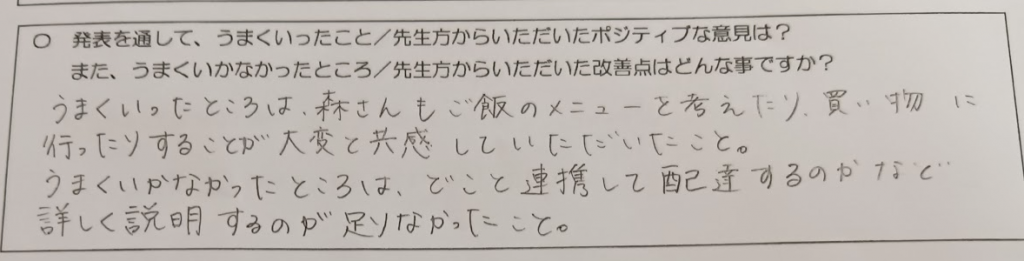 ○ 発表を通して、うまくいったこと／先生方からいただいたポジティブな意見は？
また、うまくいかなかったところ／先生方からいただいた改善点はどんな事ですか？
うまくいったところは、森さんもご飯のメニューを考えたり、買い物に
行ったりすることが大変と共感していただいたこと。
うまくいかなかったところは、どこと連携して配達するのかなど
詳しく説明するのが足りなかったこと。